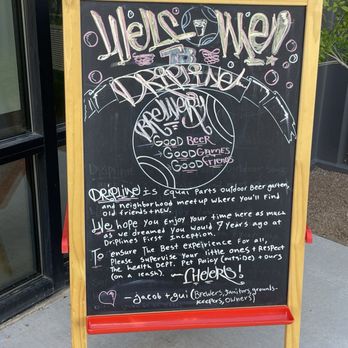 Welcome
To
DRIPLINE
BREWERY
GOOD BEER
GOOD GAMES
GOOD FRIENDS
DRIPLINE Is Equal Parts Outdoor Beer garden,
and neighborhood meetup where you'll find
old friends + new.
We hope you Enjoy your time here as much
as we dreamed you would 7 years ago at
Driplines First Inception.
To ensure The Best expeirience For all,
Please Supervise your little ones + Respect
The Health Dept. Pet Policy (outside) + Ours
(on a leash).
— CHEERS!
— Jacob + gui (Brewers, Janitors, grounds-
keepers, owners)